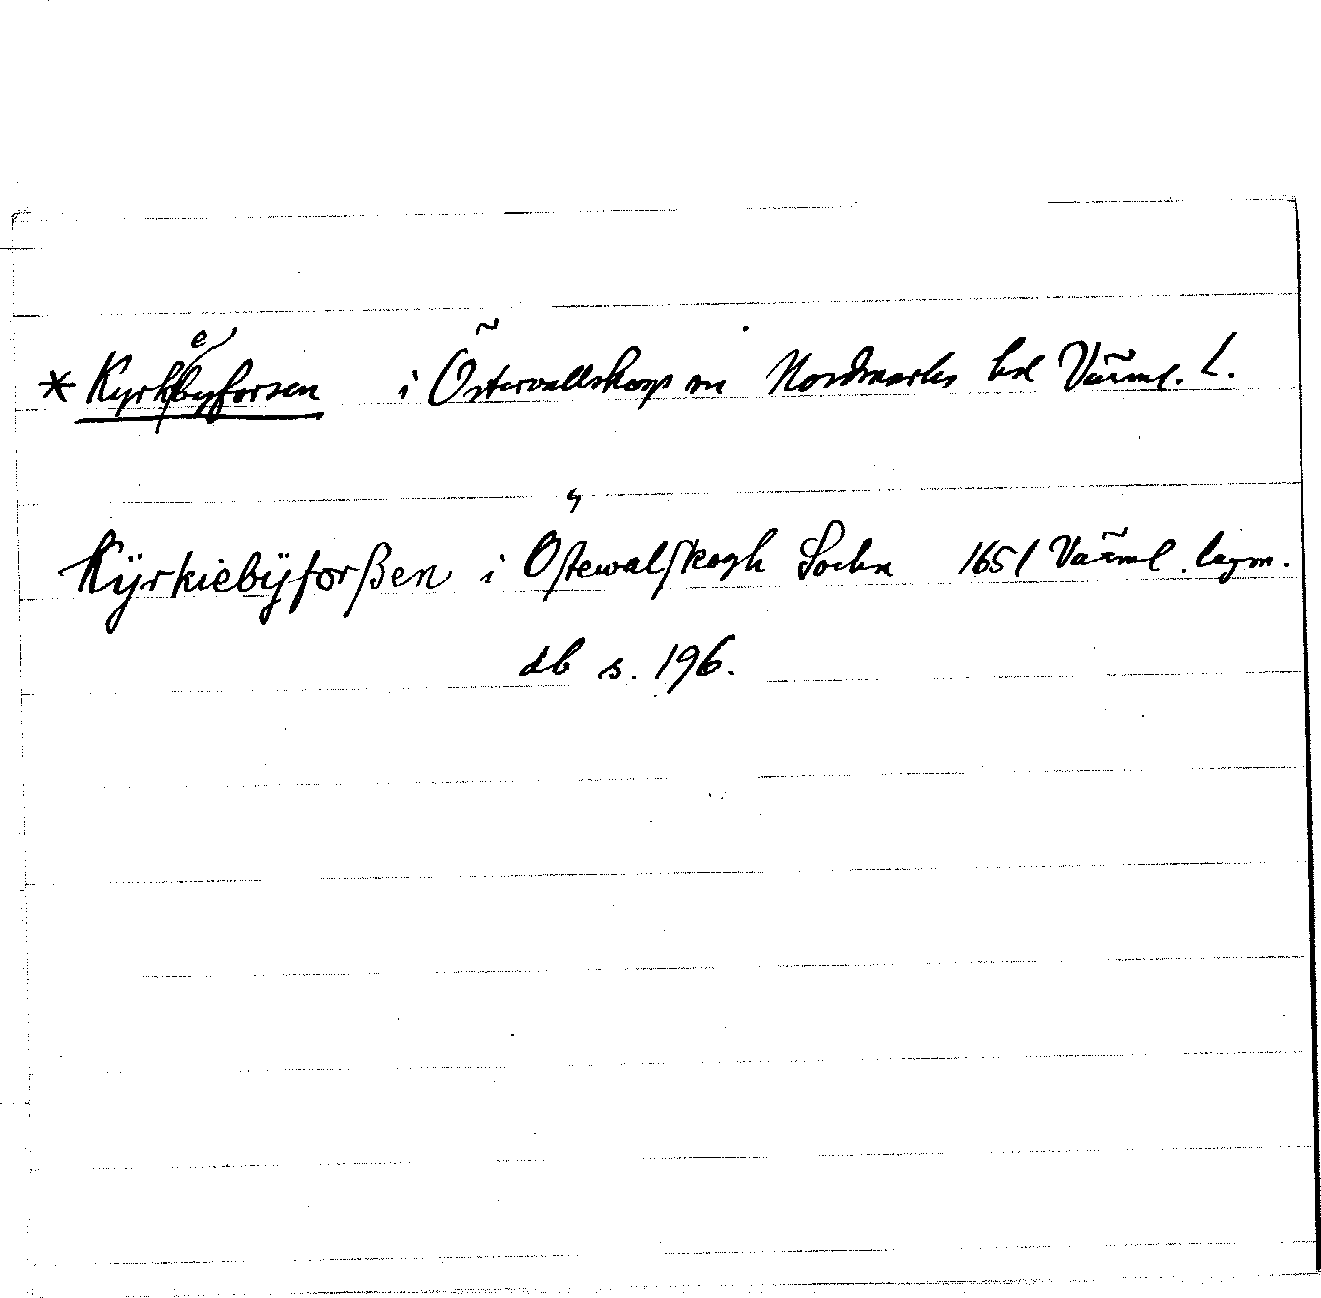 * Kyrkebyforsen i Östervallskogs sn Nordmarks hd Värml. L.
Kÿrkiebÿforßen i Östewalskogh Sockn 1651 Värml. lagm.
db s. 196.